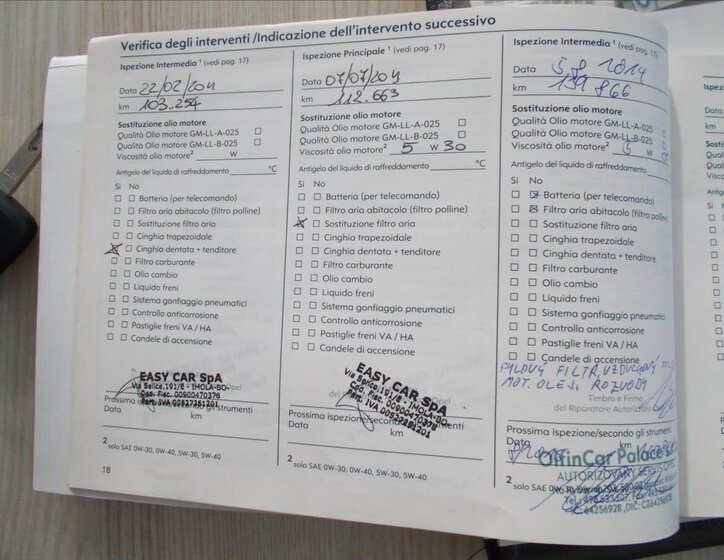 Verifica degli interventi /Indicazione dell'intervento successivo
Ispezione Intermedia ¹ (vedi pag. 17)
Data 22/02/2011
km 103.254
Sostituzione olio motore
Qualità Olio motore GM-LL-A-025 ☐
Qualità Olio motore GM-LL-B-025 ☐
Viscosità olio motore² W
Antigelo del liquido di raffreddamento °C
Si No
☐ ☐ Batteria (per telecomando)
☐ ☐ Filtro aria abitacolo (filtro polline)
☐ ☐ Sostituzione filtro aria
☐ ☐ Cinghia trapezoidale
☒ ☐ Cinghia dentata + tenditore
☐ ☐ Filtro carburante
☐ ☐ Olio cambio
☐ ☐ Liquido freni
☐ ☐ Sistema gonfiaggio pneumatici
☐ ☐ Controllo anticorrosione
☐ ☐ Pastiglie freni VA / HA
☐ ☐ Candele di accensione
EASY CAR SpA
Via Selice,191/E - IMOLA-BO-
Cod. Fisc. 00900470378
Part. IVA 00527281201
Prossima ispezione/secondo gli strumenti
Data km
2
solo SAE 0W-30, 0W-40, 5W-30, 5W-40
18
Ispezione Principale ¹ (vedi pag. 17)
Data 07/07/2011
km 112.663
Sostituzione olio motore
Qualità Olio motore GM-LL-A-025 ☐
Qualità Olio motore GM-LL-B-025 ☐
Viscosità olio motore² 5 W 30
Antigelo del liquido di raffreddamento °C
Si No
☐ ☐ Batteria (per telecomando)
☐ ☐ Filtro aria abitacolo (filtro polline)
☒ ☐ Sostituzione filtro aria
☐ ☐ Cinghia trapezoidale
☐ ☐ Cinghia dentata + tenditore
☐ ☐ Filtro carburante
☐ ☐ Olio cambio
☐ ☐ Liquido freni
☐ ☐ Sistema gonfiaggio pneumatici
☐ ☐ Controllo anticorrosione
☐ ☐ Pastiglie freni VA / HA
☐ ☐ Candele di accensione
EASY CAR SpA
Via Selice,191/E - IMOLA-BO-
Cod. Fisc. 00900470378
Part. IVA 00527281201
Prossima ispezione/secondo gli strumenti
Data km
2
solo SAE 0W-30, 0W-40, 5W-30, 5W-40
Ispezione Intermedia ¹ (vedi pag. 17)
Data 5.8 2014
km 139 866
Sostituzione olio motore
Qualità Olio motore GM-LL-A-025 ☐
Qualità Olio motore GM-LL-B-025 ☐
Viscosità olio motore² 5 W
Antigelo del liquido di raffreddamento °C
Si No
☐ ☒ Batteria (per telecomando)
☐ ☒ Filtro aria abitacolo (filtro polline)
☐ ☐ Sostituzione filtro aria
☐ ☐ Cinghia trapezoidale
☐ ☐ Cinghia dentata + tenditore
☐ ☐ Filtro carburante
☐ ☐ Olio cambio
☐ ☐ Liquido freni
☐ ☐ Sistema gonfiaggio pneumatici
☐ ☐ Controllo anticorrosione
☐ ☐ Pastiglie freni VA / HA
☐ ☐ Candele di accensione
PYLOVÝ FILTR, VZDUCHOVÝ FILT
MOT. OLEJ. ROZVODY
Timbro e Firma
del Riparatore Autorizzato
Prossima ispezione/secondo gli strumenti
Data km
OlfinCar Palace
AUTORIZOVANÝ SERVIS OPEL
2
solo SAE